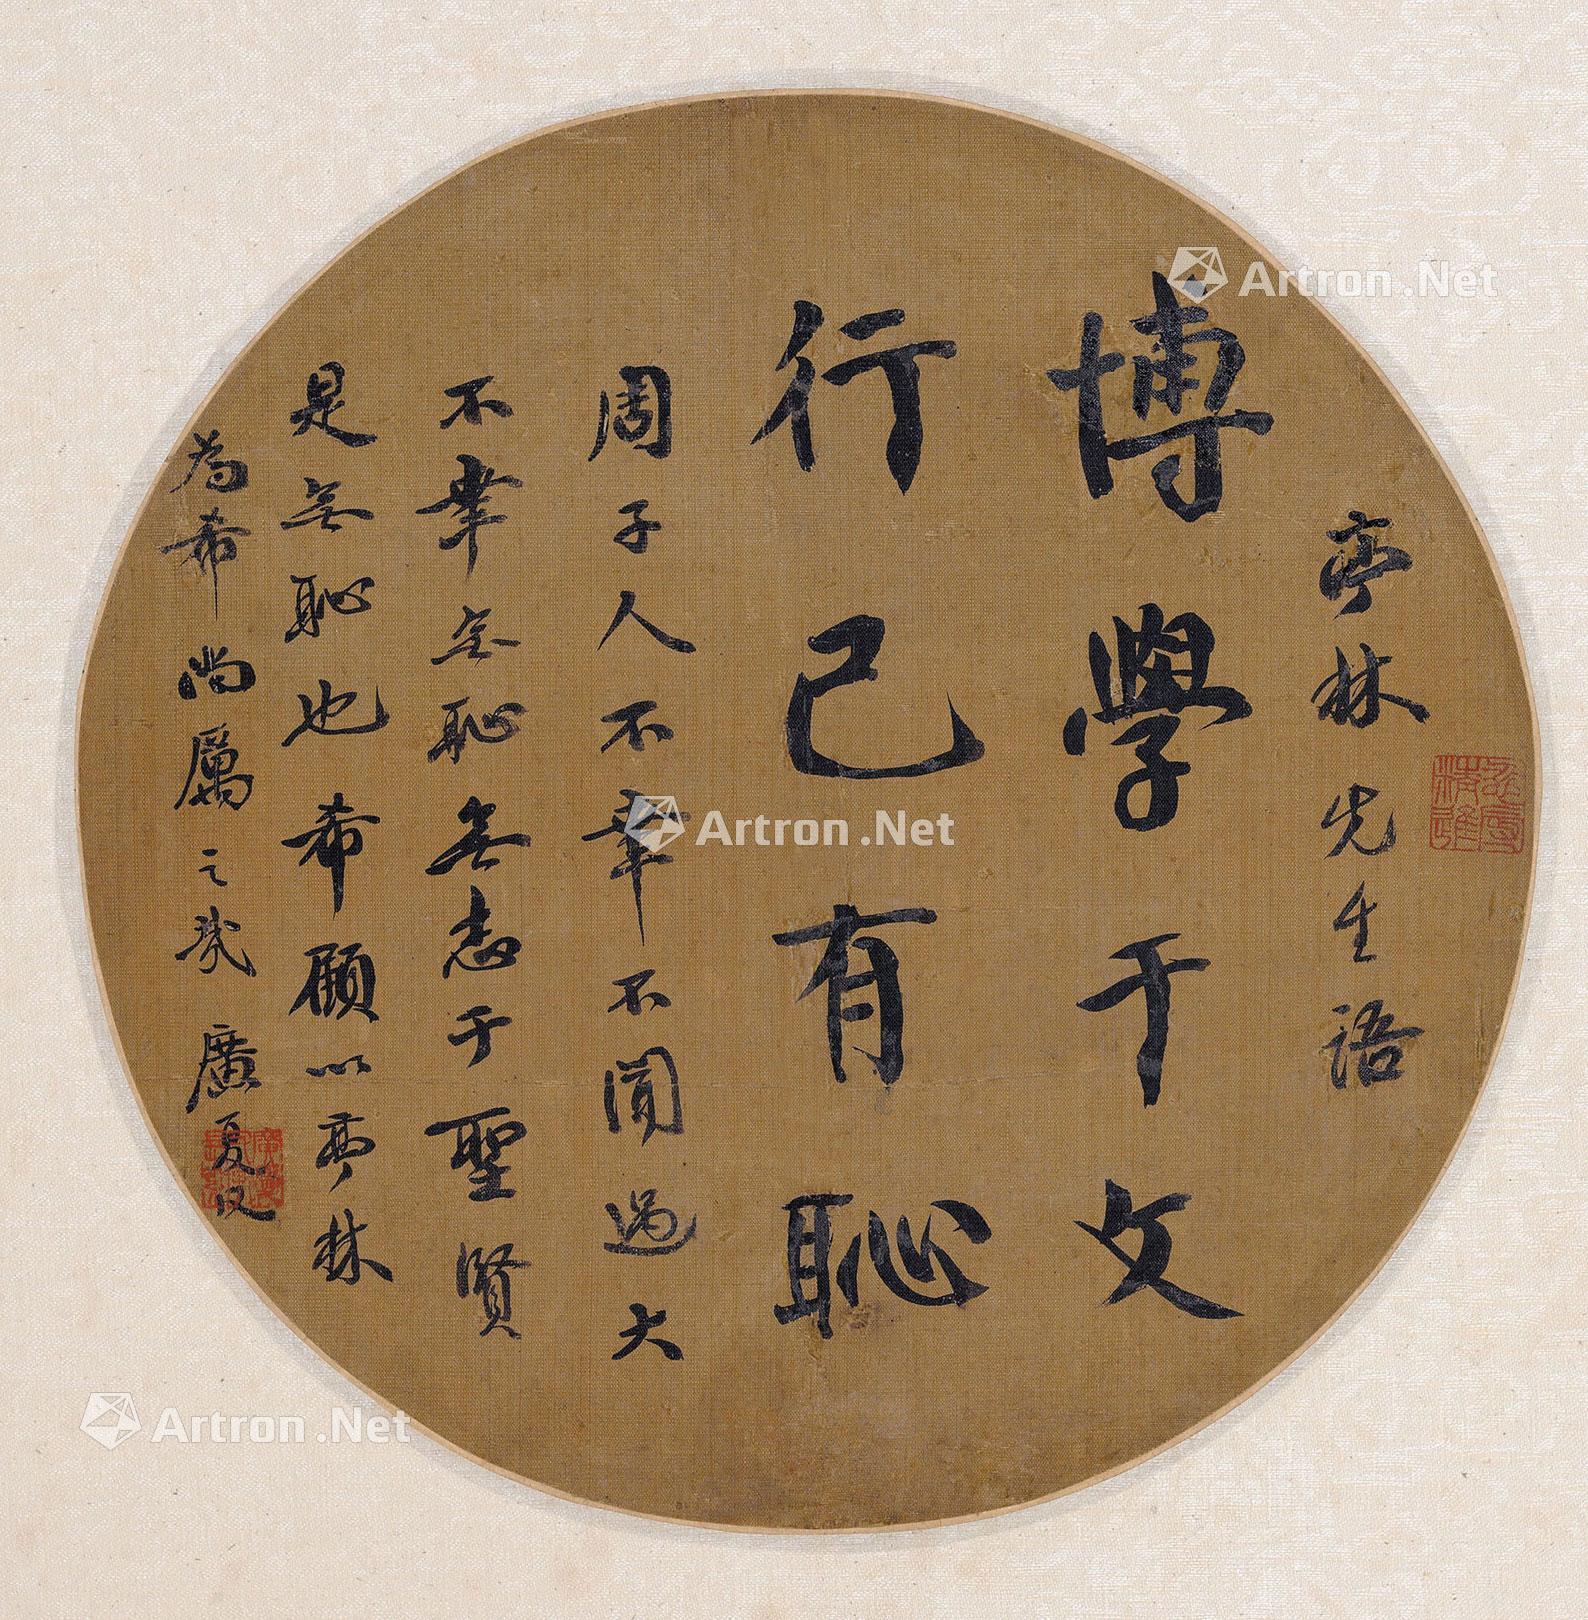 亭林先生語
博學于文
行己有恥
周子人不幸不聞過大
不幸無恥無志于聖賢
是無恥也希顧以亭林
為希尚屬之
Artron.Net
Artron.Net
Artron.Net